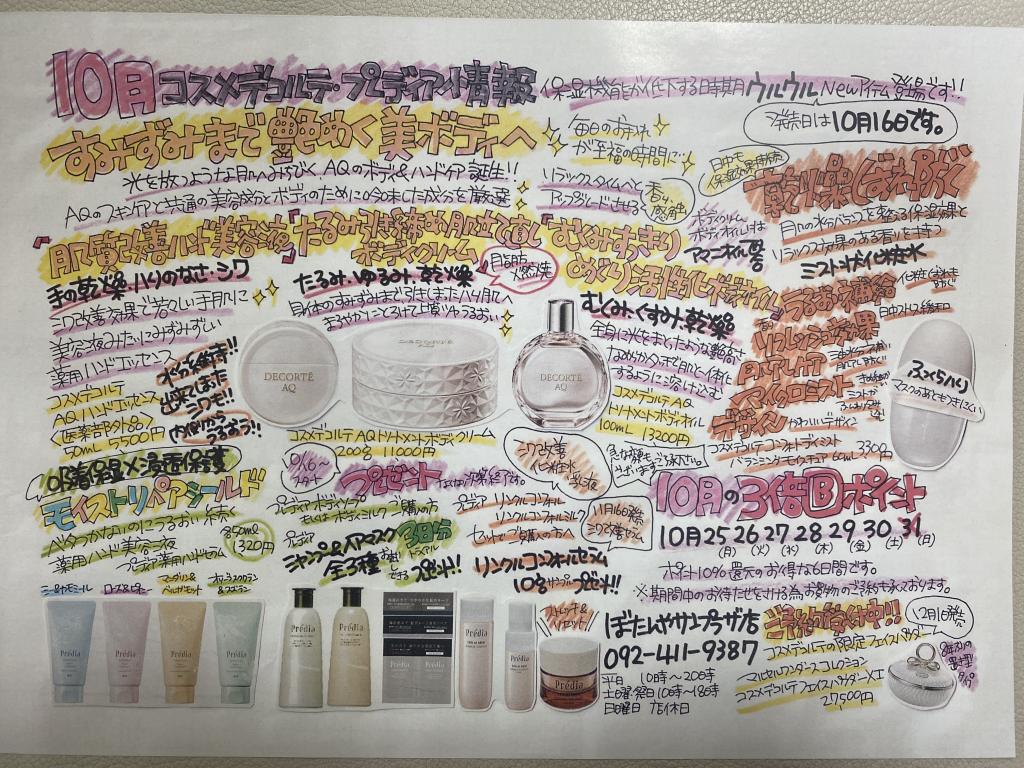 10月コスメデコルテ・プレディア情報
保湿機能が低下する時期 ウルウルNewアイテム登場です!!
発売日は10月16日です。
すみずみまで艶めく美ボディへ
光を放つような肌へみちびく、AQのボディ&ハンドケア誕生!!
AQのスキンケアと共通の美容成分とボディのために今求した成分を厳選
毎日のお手入れ
が至福の時間に…
リラックスタイムへと
アップグレードさせる
香り、感触
ボディクリーム
ボディオイルは
アマニオイル配合
『肌質改善ハンド美容液』
手の乾燥 ハリのなさ・シワ
シワ改善効果で若々しい手肌に
美容液みたいにみずみずしい
薬用ハンドエッセンス
コスメデコルテ
AQハンドエッセンス
<医薬部外品>
50mL 5,500円
出来てしまった
シワも!!
内側から
うるおう!!
『たるみ引き締め肌立て直し
ボディクリーム』
たるみ・ゆるみ、乾燥
脂肪
燃焼
身体のすみずみまで引きしまったハリ肌へ
まろやかにとろけて上質なうるおい
DECORTÉ
AQ
コスメデコルテAQトリートメントボディクリーム
200g 11000円
『むくみすっきり
めぐり活性化ボディオイル』
むくみ、くすみ、乾燥
全身に光をまとったような艶を
なめらかタッチで肌と一体化
するように溶け込む
DECORTÉ
AQ
コスメデコルテAQ
トリートメントボディオイル
100mL 13200円
日中も
乾燥ばれ防ぐ
肌の水分バランスを整える保湿効果と
リラックス効果のある香りを持つ
ミスト状化粧水
うるおい補給
香り
リフレッシュ効果
肌ケア
マイクロミスト
デザイン
かわいいデザイン
コスメデコルテコンフォートデイミスト
バランシングモイスチュア 60mL 3300円
ふっくらハリ
マスクのあともつきにくい
吸着保湿×浸透保護
モイストリペアシールド
ベタつかないのにうるおい続く
薬用ハンド美容液
プレディア薬用ハンドセラム
各50mL
1320円
10/16〜
スタート
プレゼント
なくなり次第終了です。
プレディアボディソープ
もしくはボディミルクご購入の方
プレディア
シャンプー&ヘアマスク3日分
全3種お試しできるトライアルプレゼント!!
シワ改善
化粧水
プレディア リンクルコンフォルム
リンクルコンフォルムミルク
セットでご購入の方へ
リンクルコンフォルムセラム
10包サンプルプレゼント!!
11月16日発売
シワ改善セラム
10月の3倍Bポイント
10月25 26 27 28 29 30 31
(月) (火) (水) (木) (金) (土) (日)
ポイント10%還元のお得な6日間です。
※期間中のお待たせをさける為お買物のご予約を承っております。
カモミール
ローズ&ピオニー
マンダリン&
ベルガモット
Prédia
Prédia
Prédia
Prédia
Prédia
Prédia
Prédia
ぼたんやサンプラザ店
092-411-9387
平日 10時〜20時
土曜・祭日10時〜18時
日曜日 店休日
ご予約受付中!!
12月1日発売
コスメデコルテの限定フェイスパウダー
マルセルワンダースコレクション
コスメデコルテフェイスパウダーⅩⅡ
27,500円